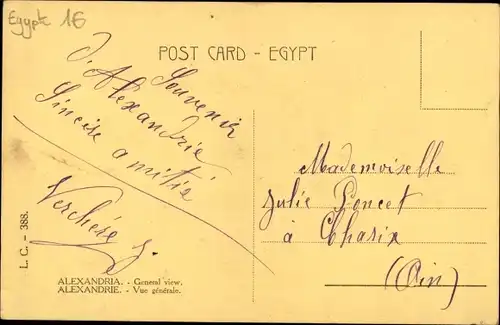 Egypte 16
POST CARD - EGYPT
Souvenir
d'Alexandrie
Sincère amitié
Verchère J.
Mademoiselle
Julie Poncet
à Charix
(Ain)
L. C. - 388.
ALEXANDRIA. - General view.
ALEXANDRIE. - Vue générale.